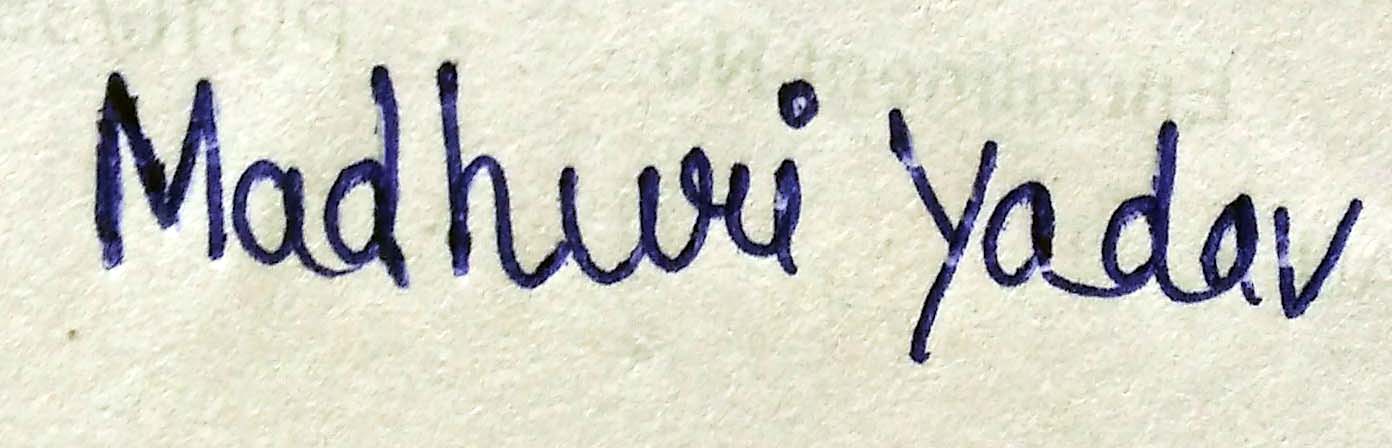 Madhuri Yadav